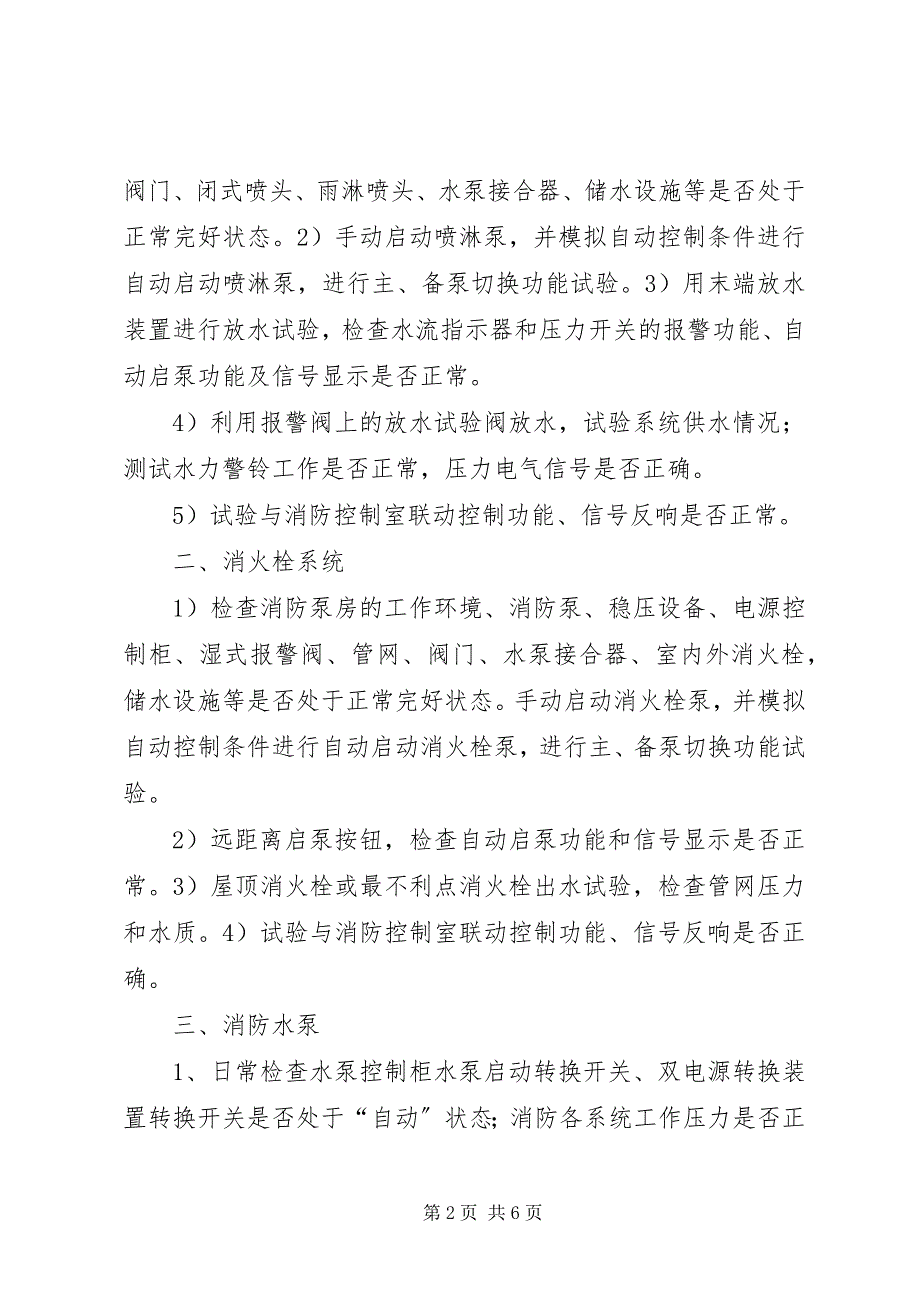 阀门、闭式喷头、雨淋喷头、水泵接合器、储水设施等是否处于
正常完好状态。2）手动启动喷淋泵，并模拟自动控制条件进行
自动启动喷淋泵，进行主、备泵切换功能试验。3）用末端放水
装置进行放水试验，检查水流指示器和压力开关的报警功能、自
动启泵功能及信号显示是否正常。
4）利用报警阀上的放水试验阀放水，试验系统供水情况；
测试水力警铃工作是否正常，压力电气信号是否正确。
5）试验与消防控制室联动控制功能、信号反响是否正常。
二、消火栓系统
1）检查消防泵房的工作环境、消防泵、稳压设备、电源控
制柜、湿式报警阀、管网、阀门、水泵接合器、室内外消火栓，
储水设施等是否处于正常完好状态。手动启动消火栓泵，并模拟
自动控制条件进行自动启动消火栓泵，进行主、备泵切换功能试
验。
2）远距离启泵按钮，检查自动启泵功能和信号显示是否正
常。3）屋顶消火栓或最不利点消火栓出水试验，检查管网压力
和水质。4）试验与消防控制室联动控制功能、信号反响是否正
确。
三、消防水泵
1、日常检查水泵控制柜水泵启动转换开关、双电源转换装
置转换开关是否处于“自动〞状态；消防各系统工作压力是否正
第 2 页 共 6 页